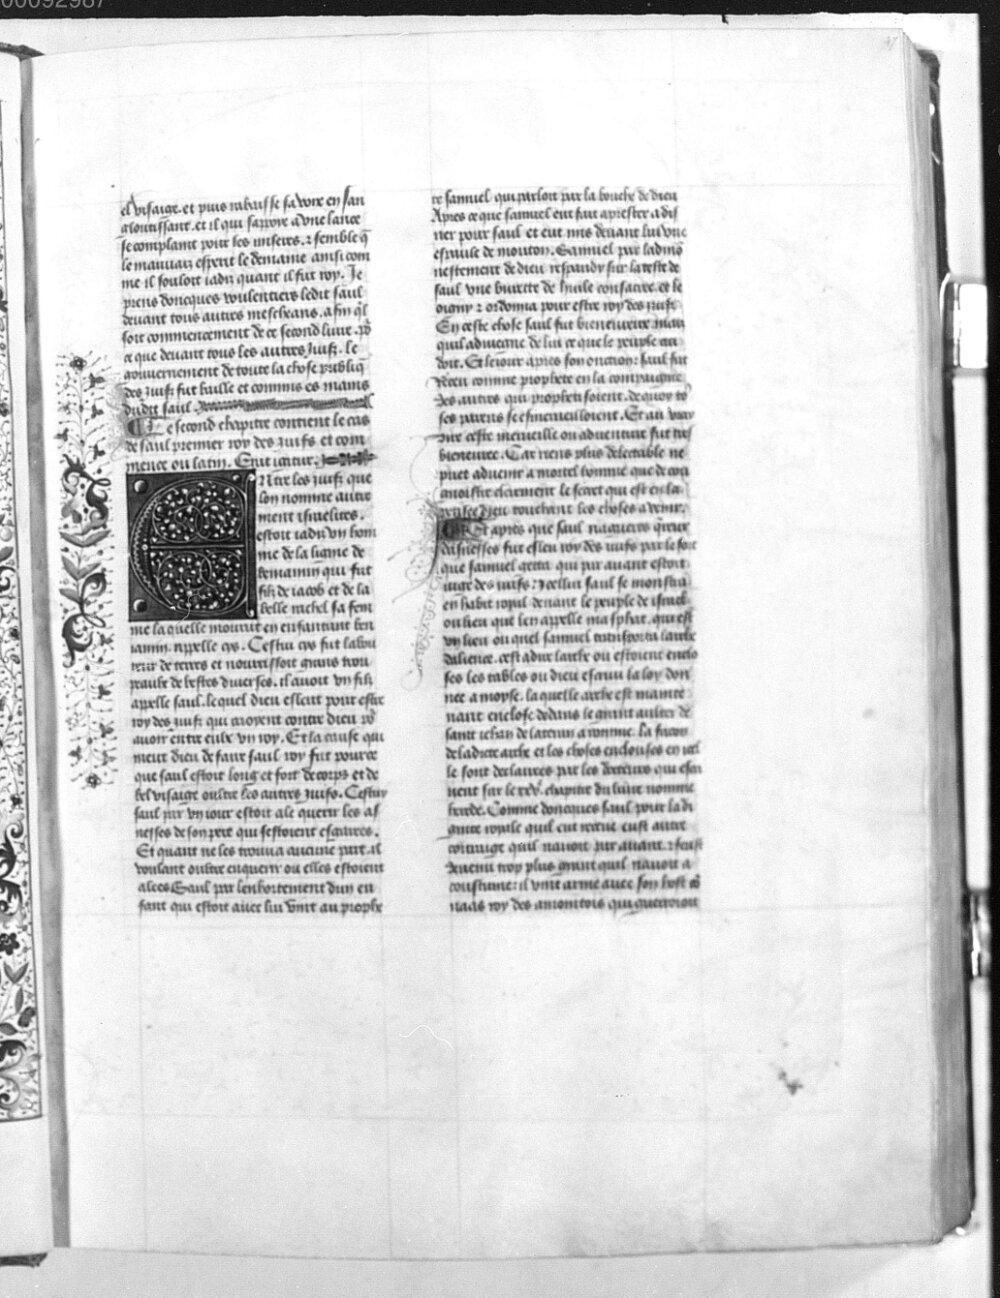 00092987
el visaige. et puis rabaisse sa voix en san
gloutissant. et il qui sappoye a vne lance
se complaint pour les miseres. ⁊ semble q̄
le mauuaiz esperit le demaine ainsi com
me il souloit iadiz quant il fut roy. Je
prens doncques voulentiers ledit saul
deuant tous autres mescheans. afin q̄l
soit commencement de ce second liure. po
ce que deuant tous les autres Juifz. le
gouuernement de toute la chose publiq̄
des Juifz fut baille et commis es mains
dudit saul.
Le second chapitre contient le cas
de saul premier roy des Juifs et com
mence ou latin. Erat igitur.
Entre les juifz que
lon nomme autre
ment israelites.
estoit iadiz vn hom
me de la ligne de
beniamin qui fut
filz de iacob et de la
belle rachel sa fem
me la quelle mourut en enfantant ben
iamin. appelle cys. Cestui cys fut labou
reur de terres et nourrissoit grans trou
peaulx de bestes diuerses. il auoit vn filz
appelle saul. lequel dieu esleut pour estre
roy des juifz qui crioyent contre dieu po
auoir entre eulx vn roy. Et la cause qui
meut dieu de faire saul roy fut pource
que saul estoit long et fort de corps et de
bel visaige oultre les autres juifs. Cestuy
saul par vn iour estoit ale querir les as
nesses de son pere qui sestoient esgarees.
Et quant ne les trouua aucune part. il
voulant oultre enquerir ou elles estoient
alees Saul par lenhortement dun en
fant qui estoit auec lui vint au prophe
te samuel qui parloit par la bouche de dieu
Apres ce que samuel eut fait aprester a dis
ner pour saul et eut mis deuant lui vne
espaule de mouton. Samuel par ladmo
nestement de dieu respandy sur la teste de
saul vne buirete de huile consacree et le
oigny ⁊ ordonna pour estre roy des juifz
En ceste chose saul fut bieneureux. mais
quil aduiegne de lui ce que le peuple cui
doit. Et le iour apres son onction: saul fut
receu comme prophete en la compaignie
des autres qui prophetisoient. de quoy to
ses parens se esmerueilloient. Et au vray
dire ceste merueille ou aduenture fut tres
bieneuree. Car riens plus delectable ne
puet aduenir a mortel homme que de con
gnoistre clerement le secret qui est en la
pensee dieu touchant les choses a venir.
Et apres que saul nagueres q̄reur
dasnesses fut esleu roy des juifs par le sort
que samuel getta qui par auant estoit
iuge des juifs: ycellui saul se monstra
en habit royal deuant le peuple de israel
ou lieu que len appelle masphat. qui est
vn lieu ou quel samuel transporta larche
daliance. cest adire larche ou estoient enclo
ses les tables ou dieu escriui la loy don
nee a moyse. la quelle arche est mainte
nant enclose dedans le grant aultier de
saint iehan de latran a romme. la facon
de ladicte arche et les choses encloses en icel
le sont declairees par les docteurs qui escri
uent sur le xxv. chapitre du liure nomme
exode. Comme doncques saul pour la di
gnite royale quil eut receue eust autre
couraige quil nauoit par auant. ⁊ feust
deuenu trop plus grant quil nauoit a
coustume: il vint arme auec son host co
naas roy des amonitois qui guerroioit